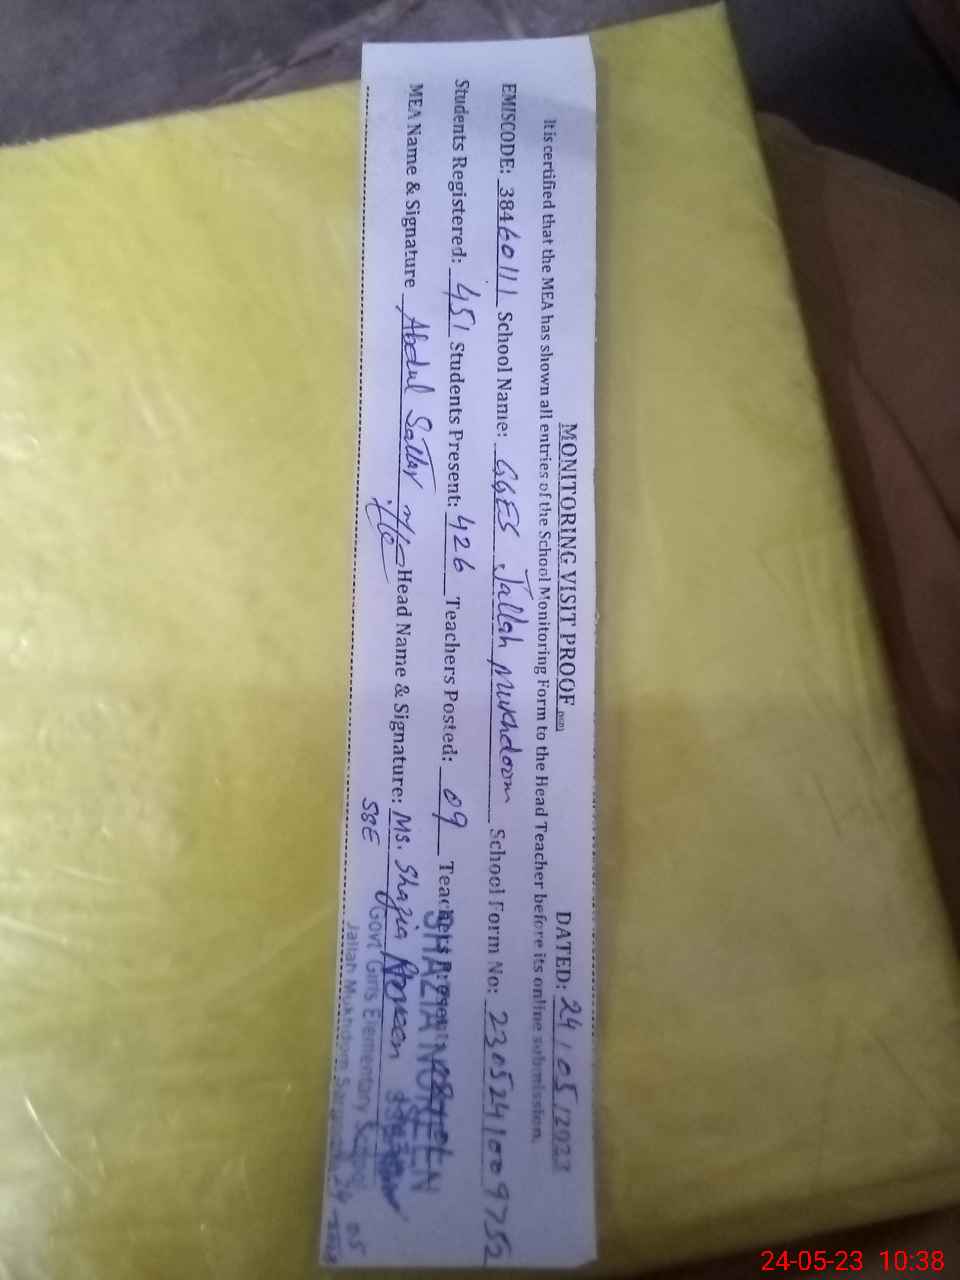 MONITORING VISIT PROOF
DATED: 24/05/2023
It is certified that the MEA has shown all entries of the School Monitoring Form to the Head Teacher before its online submission.
EMISCODE: 38460111 School Name: GGES Jallah Mukhdoom School Form No: 2305241009752
Students Registered: 451 Students Present: 426 Teachers Posted: 09 Teachers Present:
MEA Name & Signature Abdul Sattar Head Name & Signature: Ms. Shazia Noreen
SSE
SHAZIA NOREEN
Govt Girls Elementary School
Jallah Mukhdom
24-05-23 10:38